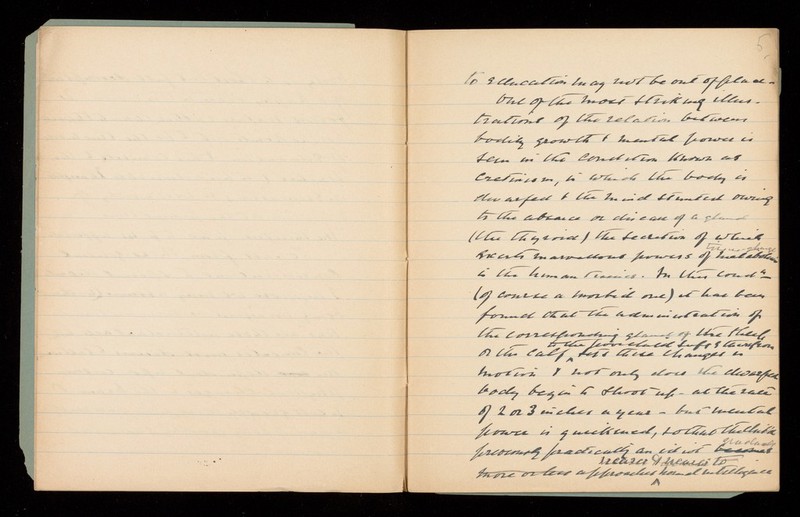 5.
to Education may not be out of place -
One of the most striking illus-
trations of the relation between
bodily growth & mental power is
seen in the condition known as
Cretinism, in which the body is
dwarfed & the mind stunted owing
to the absence or disease of a gland
(the thyroid) the secretion of which
tissue change
exerts marvellous powers of metabolism
in the human tissues. In this condn
(of course a morbid one) it has been
found that the administration of
the corresponding gland of the sheep
to the
or the Calf sets these changes in
motion & not only does the dwarfed
body begin to shoot up - at the rate
of 2 or 3 inches a year - but mental
power is quickened, so that the child
gradually
previously practically an idiot becomes
nearer & nearer to
more or less approaches normal intelligence